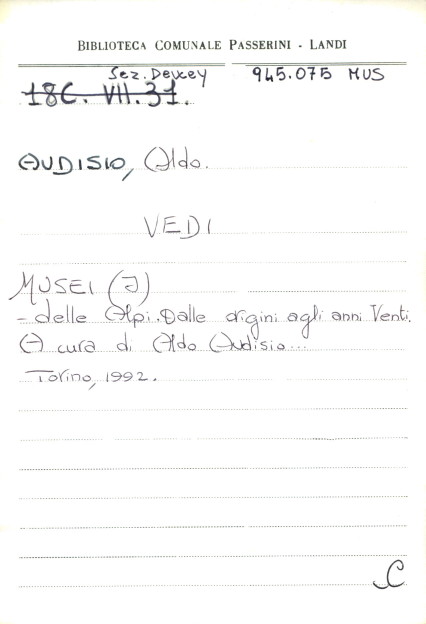 BIBLIOTECA COMUNALE PASSERINI - LANDI
Sez. Dewey 945.075 MUS
18C. VII. 31.
AUDISIO, Aldo.
VEDI
MUSEI (I)
- delle Alpi. Dalle origini agli anni Venti.
A cura di Aldo Audisio...
Torino, 1992.
C